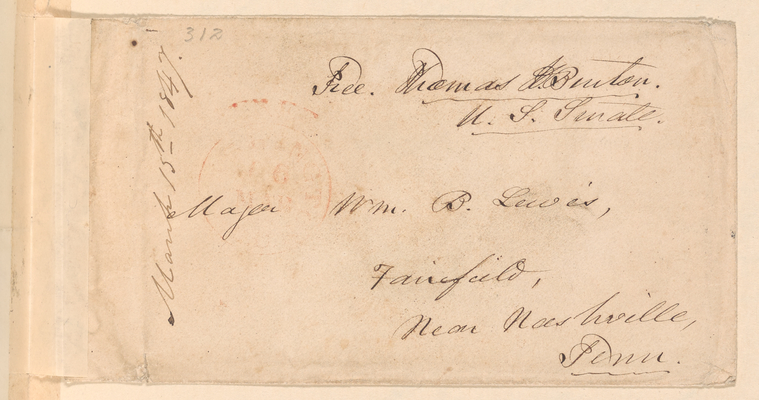 312
Free. Thomas H. Benton.
U. S. Senate.
March 15th 1847.
Major Wm. B. Lewis,
Fairfield,
Near Nashville,
Tenn.